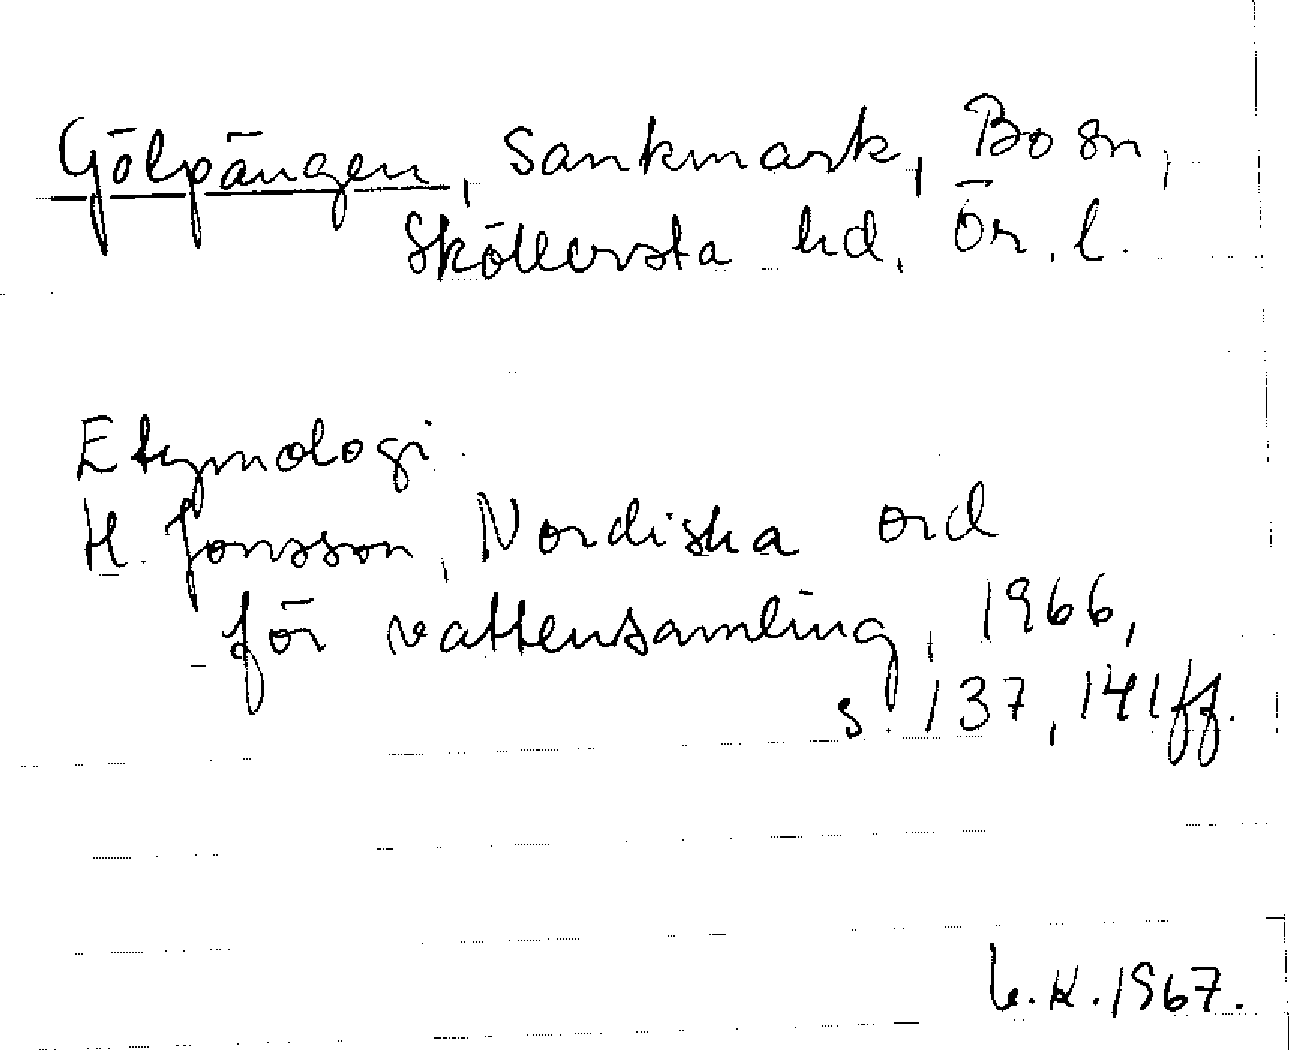 Gölpängen, sankmark, Bo sn,
Sköllersta hd, Ör. l.
Etymologi.
H. Jonsson, Nordiska ord
för vattensamling, 1966,
s. 137, 141ff.
L.K. 1967.